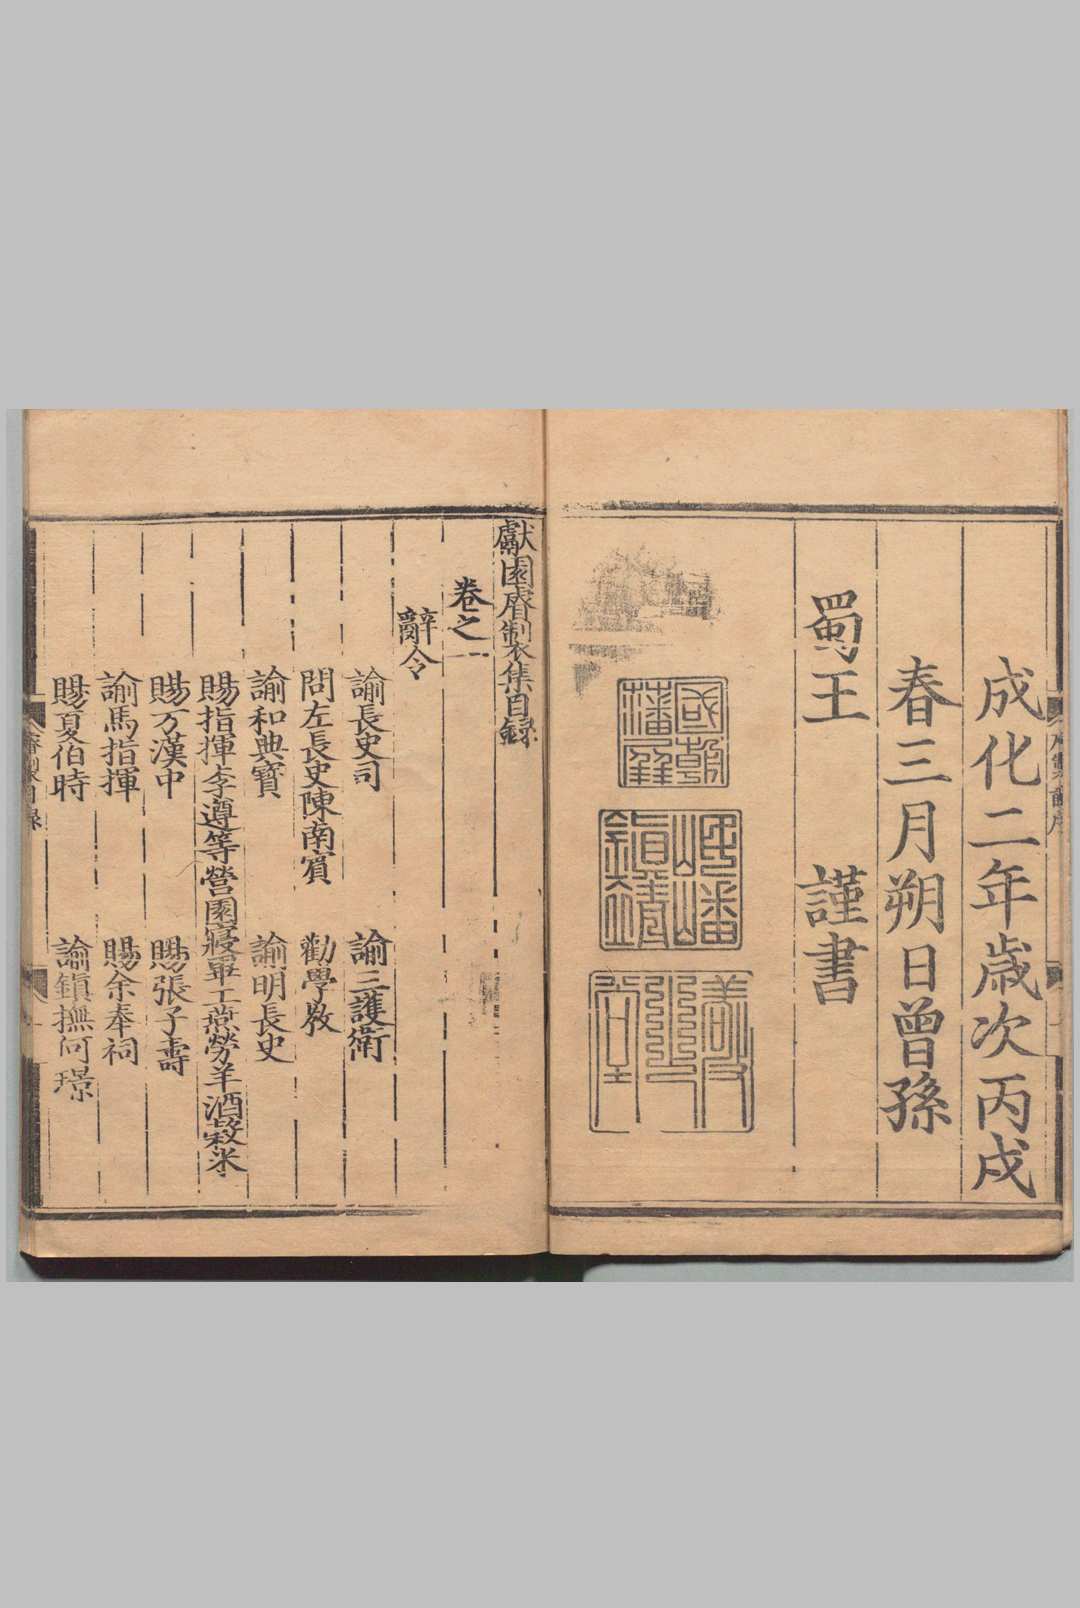 成化二年歲次丙戌
春三月朔日曾孫
蜀王 謹書
國朝
藩屏
岷嶓
鎮靖
獻園睿製集目錄
卷之一
辭令
諭長史司 諭三護衛
問左長史陳南賓 勸學敎
諭和典寶 諭明長史
賜指揮李遵等營園寢軍工燕勞羊酒敍米
賜万漢中 賜張子壽
諭馬指揮 賜余奉祠
賜夏伯時 諭鎮撫何璟